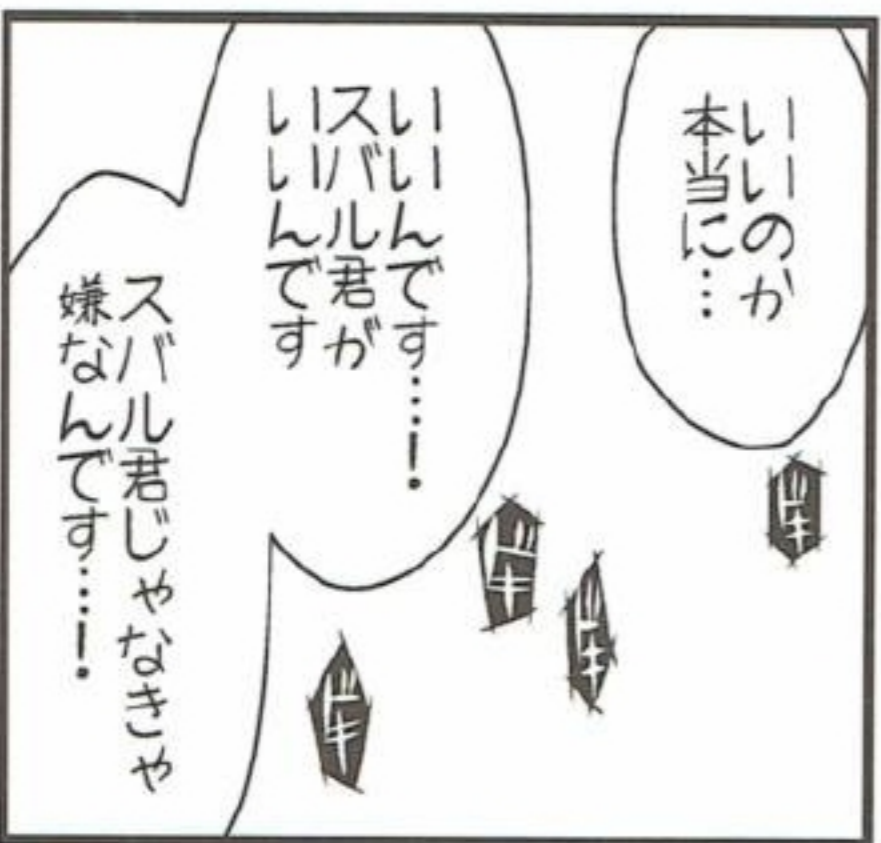 いいのか
本当に…
いいんです…!
スバル君が
いいんです
スバル君じゃなきゃ
嫌なんです…!
ドキ
ドキ
ドキ
ドキ